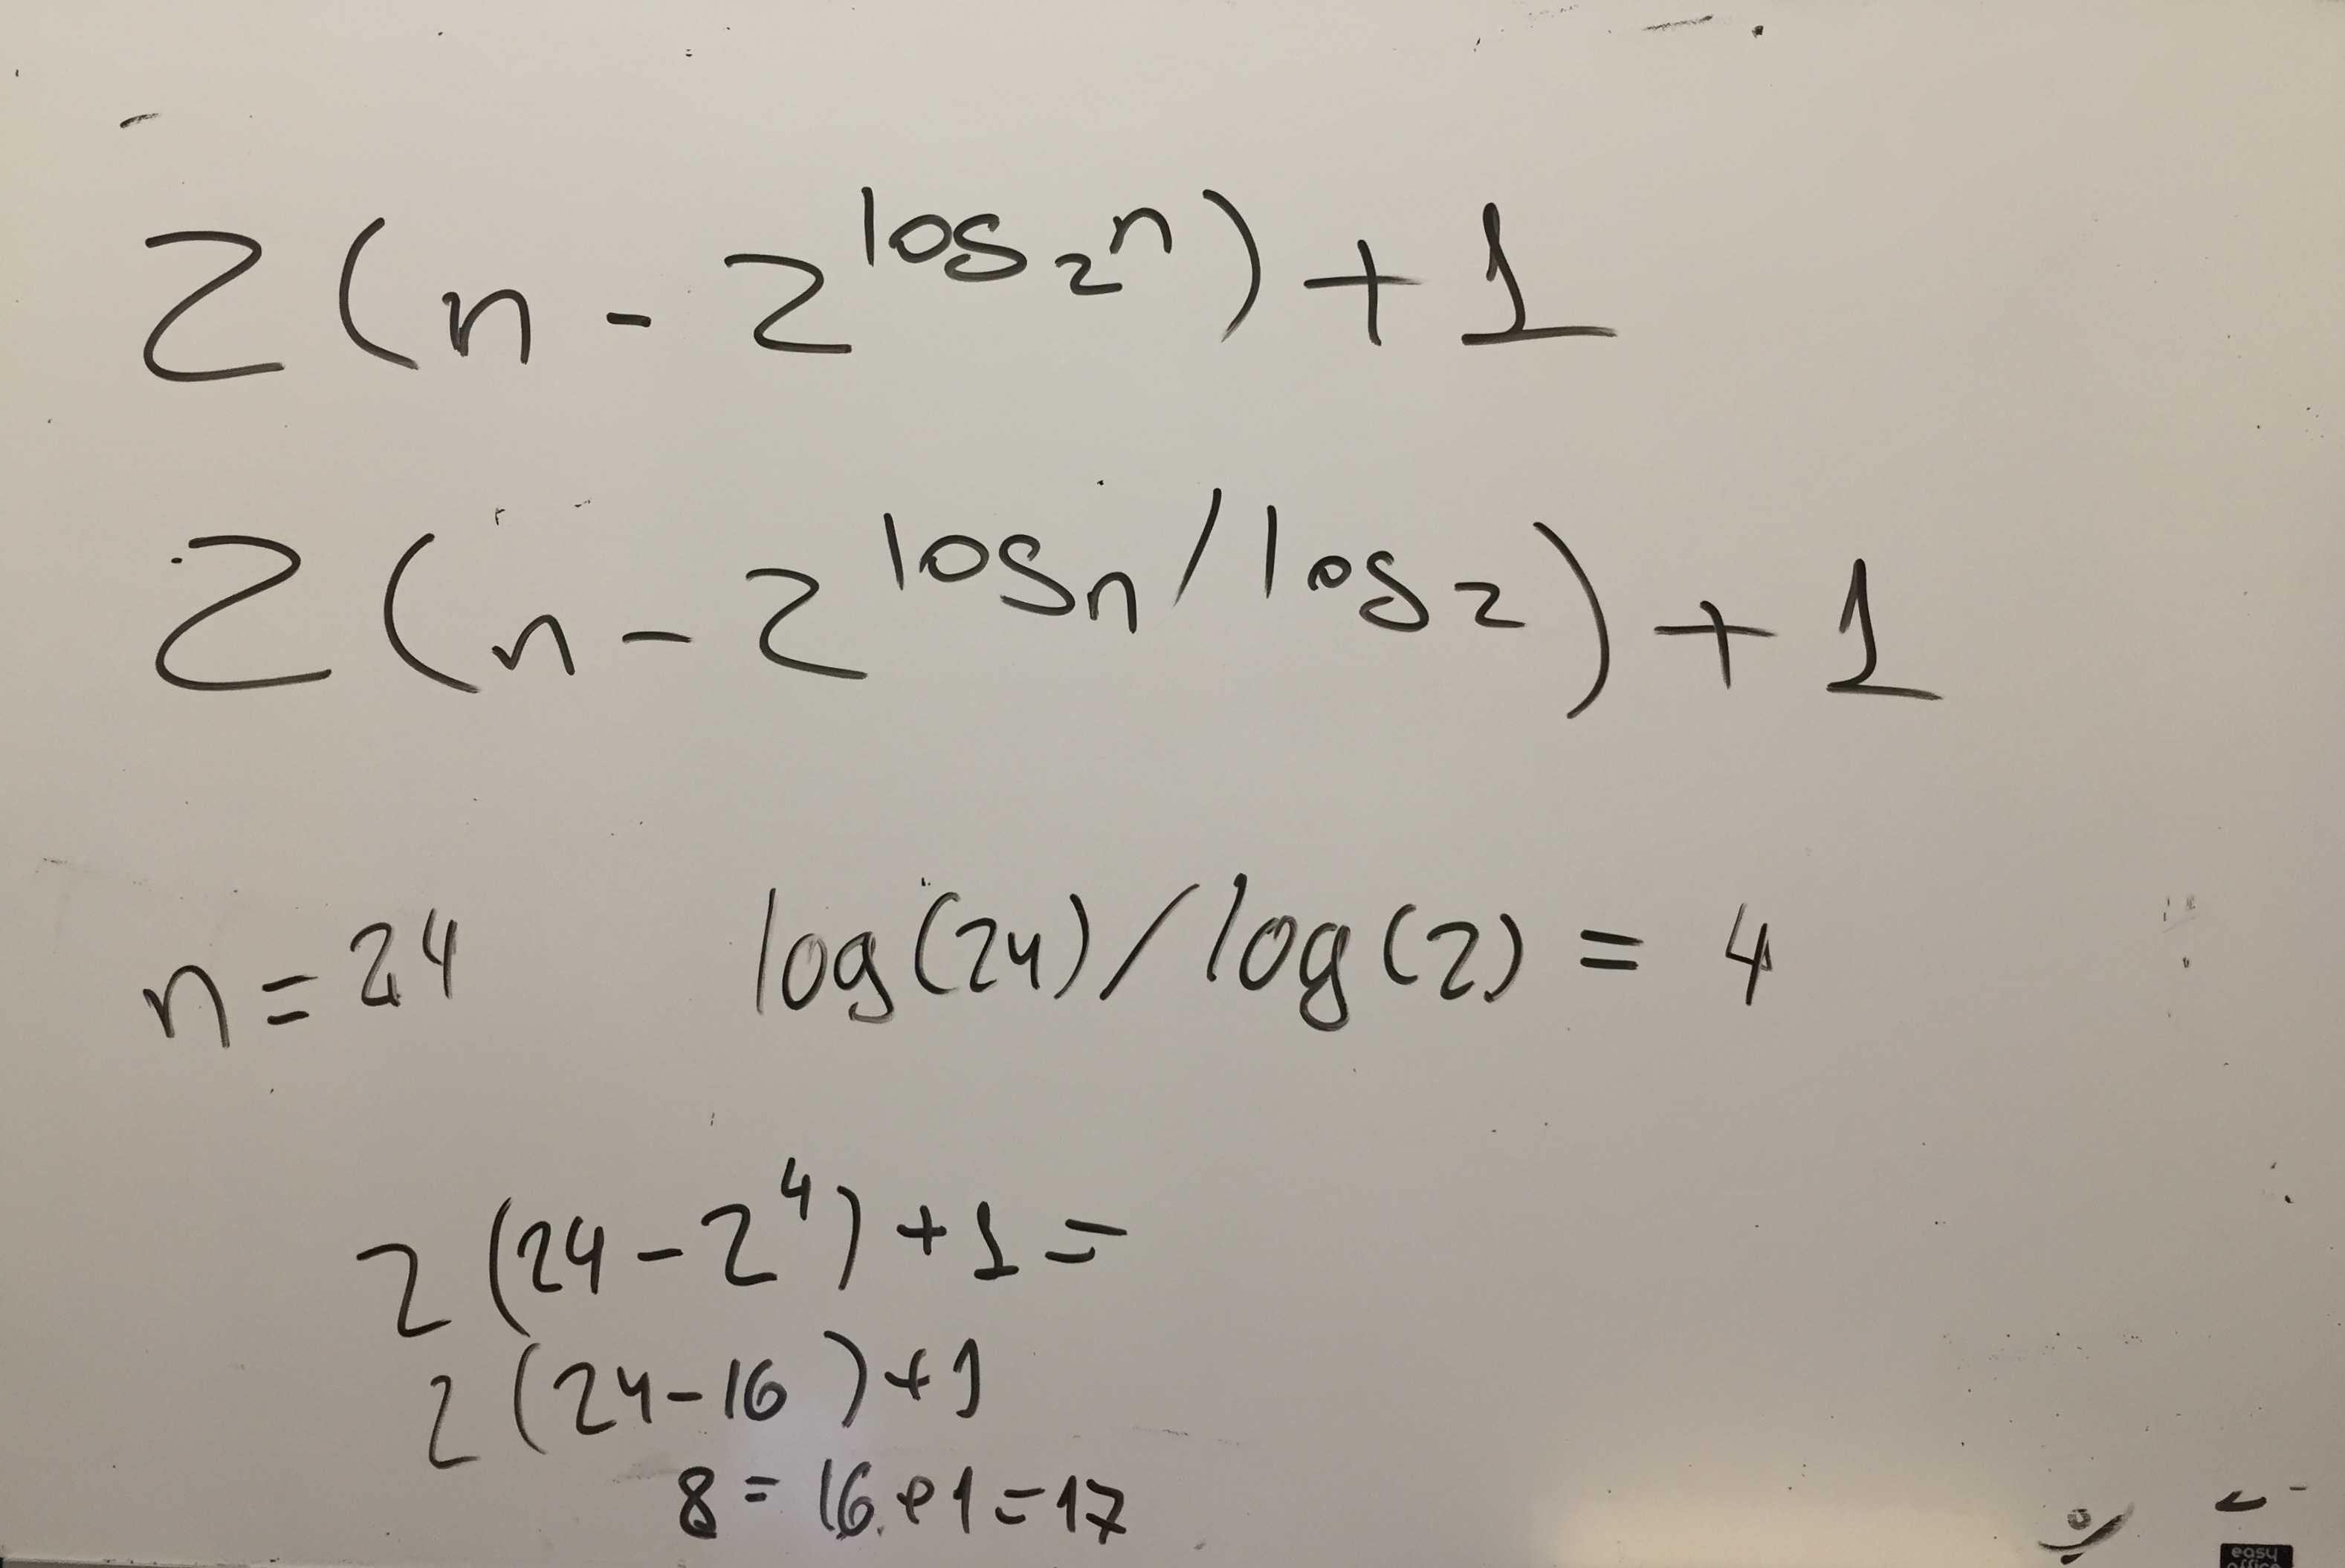 2(n - 2^log₂n) + 1
2(n - 2^log n / log 2) + 1
n = 24 log(24)/log(2) = 4
2(24 - 2⁴) + 1 =
2(24 - 16) + 1
8 = 16 + 1 = 17
easy
office